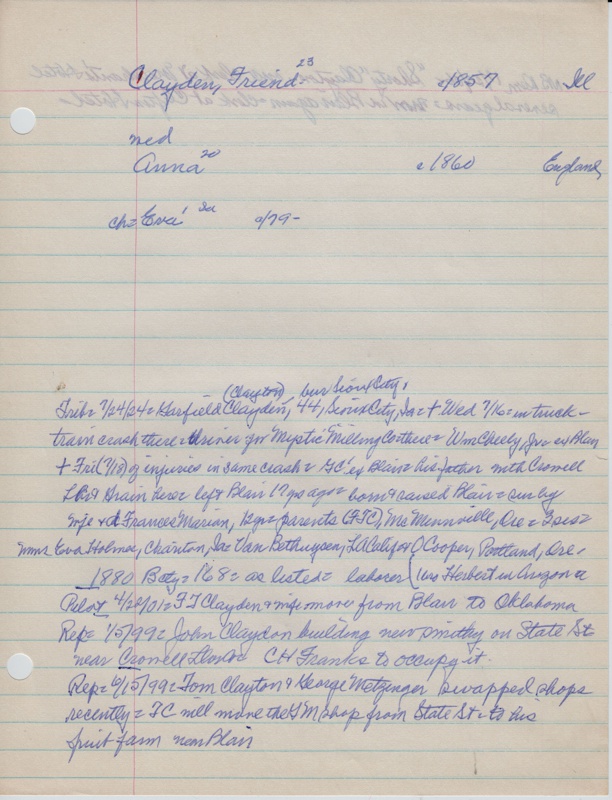 Clayden, Friend 23 c/1857 Ill
med
Anna 20 c 1860 England
ch= Eva 1 Ia c/79-
(Clayton), bur Sioux City,
Trib= 7/24/24= Garfield Clayden, 44, Sioux City, Ia= + Wed 7/16= in truck-
train crash there= driver for Mystic Milling Co there= Wm Cheely, Jr= ex Blair
+ Fri (7/18) of injuries in same crash= GC ex Blair= his father with Crowell
L & Grain here= left Blair 17 yr ago= born & raised Blair= sur by
wife & d Frances Marian, 12yr= parents (FJC), McMinnville, Ore= 3 sis=
mms Eva Holmes, Chariton, Ia= Van Bethuysen, LA Calif & O Cooper, Portland, Ore,
1880 Baty= 168= as listed= laborer (bro Herbert in Oregon
Pilot 4/20/01= FJ Clayden & wife move from Blair to Oklahoma
Rep= 1/5/99= John Claydon building new smithy on State St
near Crowell Elev= CH Franks to occupy it
Rep= 6/15/99= Tom Clayton & George Metzinger swapped shops
recently= TC will move the GM shop from State St= to his
fruit farm near Blair